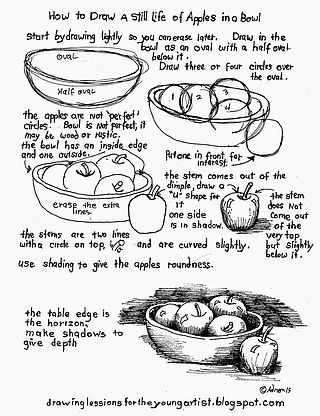 How to Draw A Still life of Apples in a Bowl
Start by drawing lightly so you can erase later. Draw in the
bowl as an oval with a half oval
below it.
Draw three or four circles over
the oval.
OVAL
Half OVAL
1 2 3 4
the apples are not "perfect"
circles. Bowl is not perfect, it
may be wood or rustic.
the bowl has an inside edge
and one outside.
Put one in front for
interest.
the stem comes out of the
dimple, draw a
"U" shape for
it
one side
is in shadow.
the stem
does not
come out
of the
very top
but slightly
below it.
erase the extra
lines.
the stems are two lines
with a circle on top, and are curved slightly.
use shading to give the apples roundness.
the table edge is
the horizon,
make shadows to
give depth
©Adron'15
drawinglessonsfortheyoungartist.blogspot.com